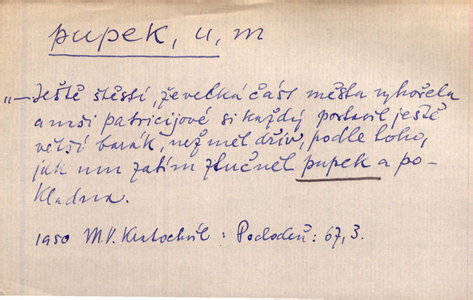 pupek, u, m
„— Ještě štěstí, že velká část města vyhořela
a mi patricijové si každý postavil ještě
větší barák, než měl dřív, podle toho,
jak mu zatím ztučněl pupek a po-
kladna.
1950 M.V. Kratochvíl: Pochodeň: 67, 3.